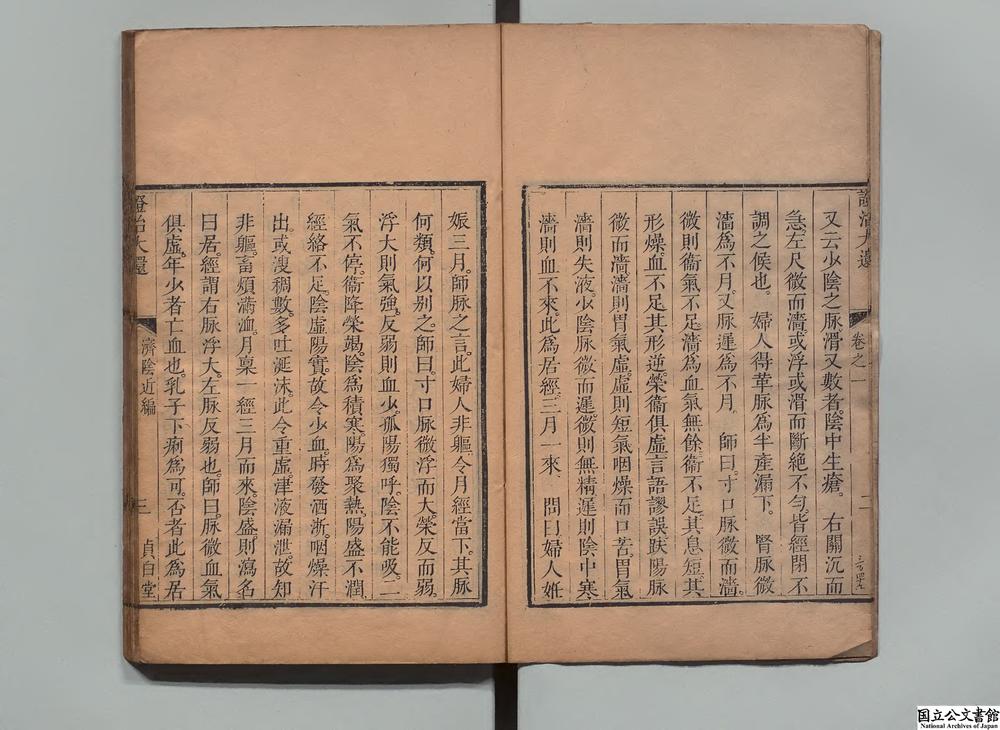 證治大還
卷之一
二
又云少陰之脉滑又數者。陰中生瘡。 右關沉而
急。左尺微而濇或浮或滑而斷絕不勻。皆經閉不
調之候也。 婦人得革脉為半產漏下。 腎脉微
濇為不月。又脉遲為不月。 師曰。寸口脉微而濇。
微則衞氣不足。濇為血氣無餘。衞不足。其息短。其
形燥。血不足。其形逆。榮衞俱虛。言語謬誤。趺陽脉
微而濇。濇則胃氣虛。虛則短氣咽燥而口苦。胃氣
濇則失液。少陰脉微而遲。微則無精。遲則陰中寒。
濇則血不來。此為居經。三月一來。 問曰。婦人姙
娠三月。師脉之言。此婦人非軀。今月經當下。其脉
何類。何以別之。師曰。寸口脉微浮而大。榮反而弱。
浮大則氣強。反弱則血少。孤陽獨呼。陰不能吸。二
氣不停。衞降榮竭。陰為積寒。陽為聚熱。陽盛不潤。
經絡不足。陰虛陽實。故令少血。時發洒淅。咽燥汗
出。或溲稠數。多吐涎沫。此令重虛。津液漏泄。故知
非軀。畜煩滿洫。月稟一經。三月而來。陰盛則瀉。名
曰居。經謂右脉浮大。左脉反弱也。師曰。脉微血氣
俱虛。年少者亡血也。乳子下痢為可。否者此為居
證治大還
濟陰近編
三
貞白堂
国立公文書館
National Archives of Japan